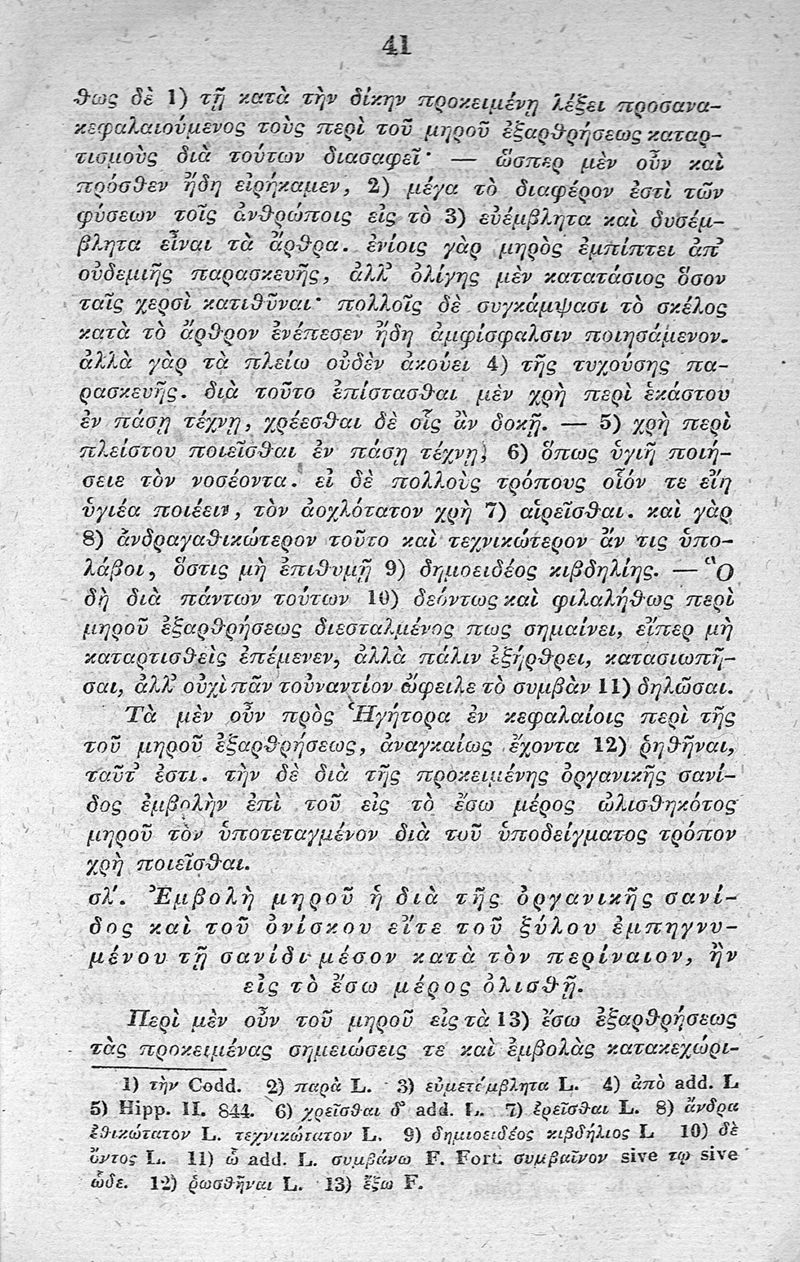 41
θως δὲ 1) τῇ κατὰ τὴν δίκην προκειμένῃ λέξει προσανα-
κεφαλαιούμενος τοὺς περὶ τοῦ μηροῦ ἐξαρθρήσεως καταρ-
τισμοὺς διὰ τούτων διασαφεῖ· — ὥσπερ μὲν οὖν καὶ
πρόσθεν ἤδη εἰρήκαμεν, 2) μέγα τὸ διαφέρον ἐστὶ τῶν
φύσεων τοῖς ἀνθρώποις εἰς τὸ 3) εὐέμβλητα καὶ δυσέμ-
βλητα εἶναι τὰ ἄρθρα. ἐνίοις γὰρ μηρὸς ἐμπίπτει ἀπ’
οὐδεμιῆς παρασκευῆς, ἀλλ’ ὀλίγης μὲν κατατάσιος ὅσον
ταῖς χερσὶ κατιθῦναι· πολλοῖς δὲ συγκάμψασι τὸ σκέλος
κατὰ τὸ ἄρθρον ἐνέπεσεν ἤδη ἀμφίσφαλσιν ποιησάμενον.
ἀλλὰ γὰρ τὰ πλείω οὐδὲν ἀκούει 4) τῆς τυχούσης πα-
ρασκευῆς. διὰ τοῦτο ἐπίστασθαι μὲν χρὴ περὶ ἑκάστου
ἐν πάσῃ τέχνῃ, χρέεσθαι δὲ οἷς ἂν δοκῇ. — 5) χρὴ περὶ
πλείστου ποιεῖσθαι ἐν πάσῃ τέχνῃ, 6) ὅπως ὑγιῆ ποιή-
σειε τὸν νοσέοντα. εἰ δὲ πολλοὺς τρόπους οἷόν τε εἴη
ὑγιέα ποιέειν, τὸν ἀοχλότατον χρὴ 7) αἱρεῖσθαι. καὶ γὰρ
8) ἀνδραγαθικώτερον τοῦτο καὶ τεχνικώτερον ἄν τις ὑπο-
λάβοι, ὅστις μὴ ἐπιθυμῇ 9) δημοειδέος κιβδηλίης. — Ὃ
δὴ διὰ πάντων τούτων 10) δεόντως καὶ φιλαλήθως περὶ
μηροῦ ἐξαρθρήσεως διεσταλμένος πως σημαίνει, εἴπερ μὴ
καταρτισθεὶς ἐπέμενεν, ἀλλὰ πάλιν ἐξήρθρει, κατασιωπῆ-
σαι, ἀλλ’ οὐχὶ πᾶν τοὐναντίον ὤφειλε τὸ συμβὰν 11) δηλῶσαι.
Τὰ μὲν οὖν πρὸς Ἡγήτορα ἐν κεφαλαίοις περὶ τῆς
τοῦ μηροῦ ἐξαρθρήσεως, ἀναγκαίως ἔχοντα 12) ῥηθῆναι,
ταῦτ’ ἐστι. τὴν δὲ διὰ τῆς προκειμένης ὀργανικῆς σανί-
δος ἐμβολὴν ἐπὶ τοῦ εἰς τὸ ἔσω μέρος ὠλισθηκότος
μηροῦ τὸν ὑποτεταγμένον διὰ τοῦ ὑποδείγματος τρόπον
χρὴ ποιεῖσθαι.
σλʹ. Ἐμβολὴ μηροῦ ἡ διὰ τῆς ὀργανικῆς σανί-
δος καὶ τοῦ ὀνίσκου εἴτε τοῦ ξύλου ἐμπηγνυ-
μένου τῇ σανίδι μέσον κατὰ τὸν περίναιον, ἢν
εἰς τὸ ἔσω μέρος ὀλισθῇ.
Περὶ μὲν οὖν τοῦ μηροῦ εἰς τὰ 13) ἔσω ἐξαρθρήσεως
τὰς προκειμένας σημειώσεις τε καὶ ἐμβολὰς κατακεχώρι-
1) τὴν Codd. 2) παρὰ L. 3) εὐμετέμβλητα L. 4) ἀπὸ add. L
5) Hipp. II. 844. 6) χρεῖσθαι δ’ add. L. 7) ἐρεῖσθαι L. 8) ἄνδρα
ἐθικώτατον L. τεχνικώτατον L. 9) δημιοειδέος κιβδήλιος L 10) δὲ
ὄντος L. 11) ὦ add. L. συμβάνω F. Fort. συμβαῖνον sive τῳ sive
ὧδε. 12) ῥωσθῆναι L. 13) ἔξω F.